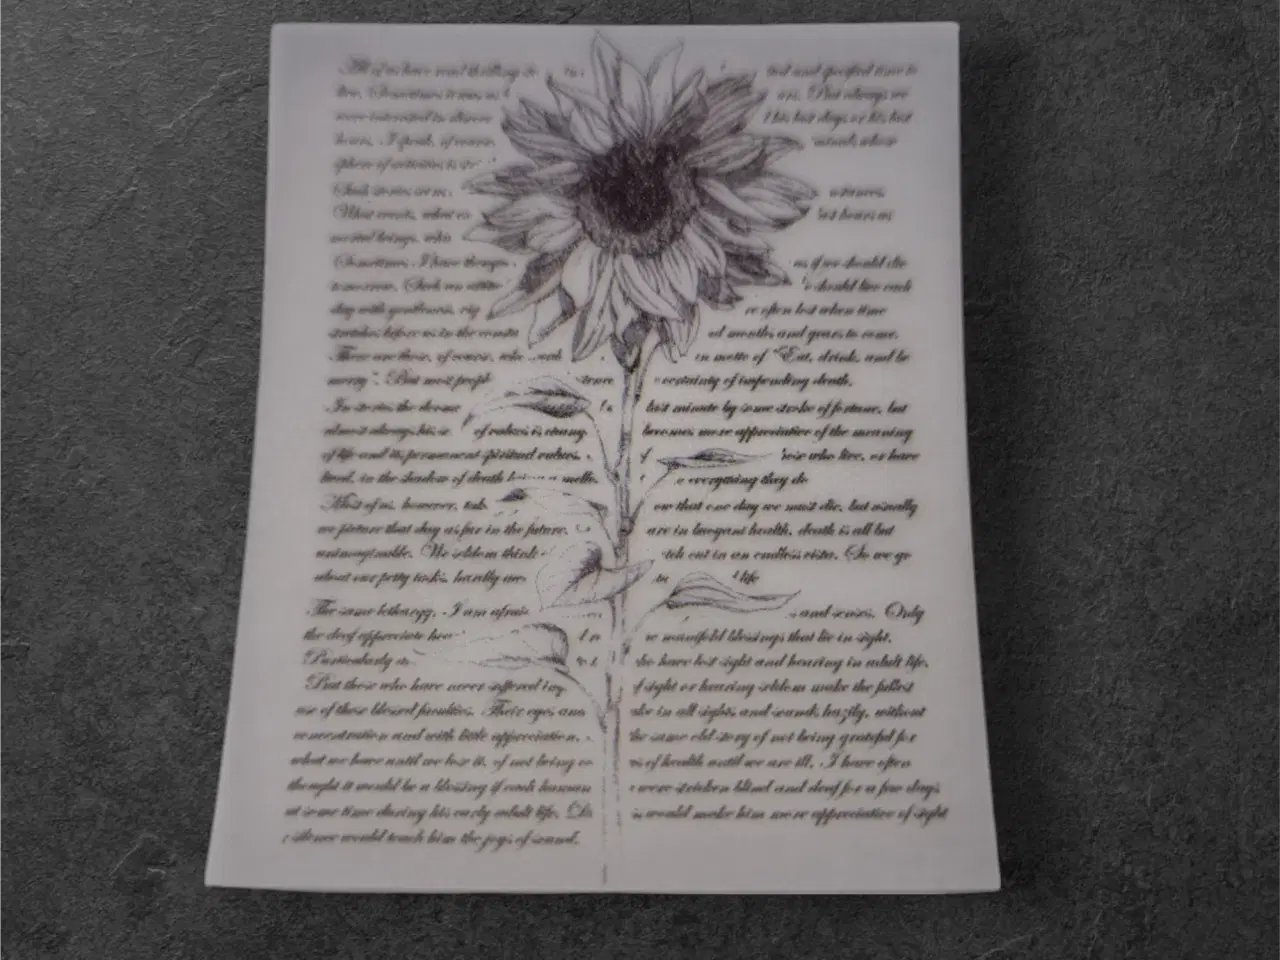 All of us have read thrilling in which had and specified time to
live. Sometimes it was as on. But always we
were interested in discove his last days or his last
hours. I speak, of course, minals whose
sphere of activities is str
Such stories set us stances.
What events, what ex last hours as
mortal beings, who
Sometimes I have though as if we should die
tomorrow. Such an attitu should live each
day with gentleness, vig re often lost when time
stretches before us in the consta ed months and years to come.
There are those, of course, who would in motto of "Eat, drink, and be
merry". But most people certainty of impending death.
In stories the doome last minute by some stroke of fortune, but
almost always his se of values is chang becomes more appreciative of the meaning
of life and its permanent spiritual values. hose who live, or have
lived, in the shadow of death bring a mello everything they do
Most of us, however, tak ow that one day we must die, but usually
we picture that day as far in the future. are in buoyant health, death is all but
unimaginable. We seldom think tch out in an endless vista. So we go
about our petty tasks, hardly awa life
The same lethargy, I am afraid and senses. Only
the deaf appreciate hear manifold blessings that lie in sight.
Particularly do ho have lost sight and hearing in adult life.
But those who have never suffered imp f sight or hearing seldom make the fullest
use of these blessed faculties. Their eyes and ake in all sights and sounds hazily, without
concentration and with little appreciation. the same old story of not being grateful for
what we have until we lose it, of not being co us of health until we are ill. I have often
thought it would be a blessing if each human were stricken blind and deaf for a few days
at some time during his early adult life. Da ss would make him more appreciative of sight
silence would teach him the joys of sound.